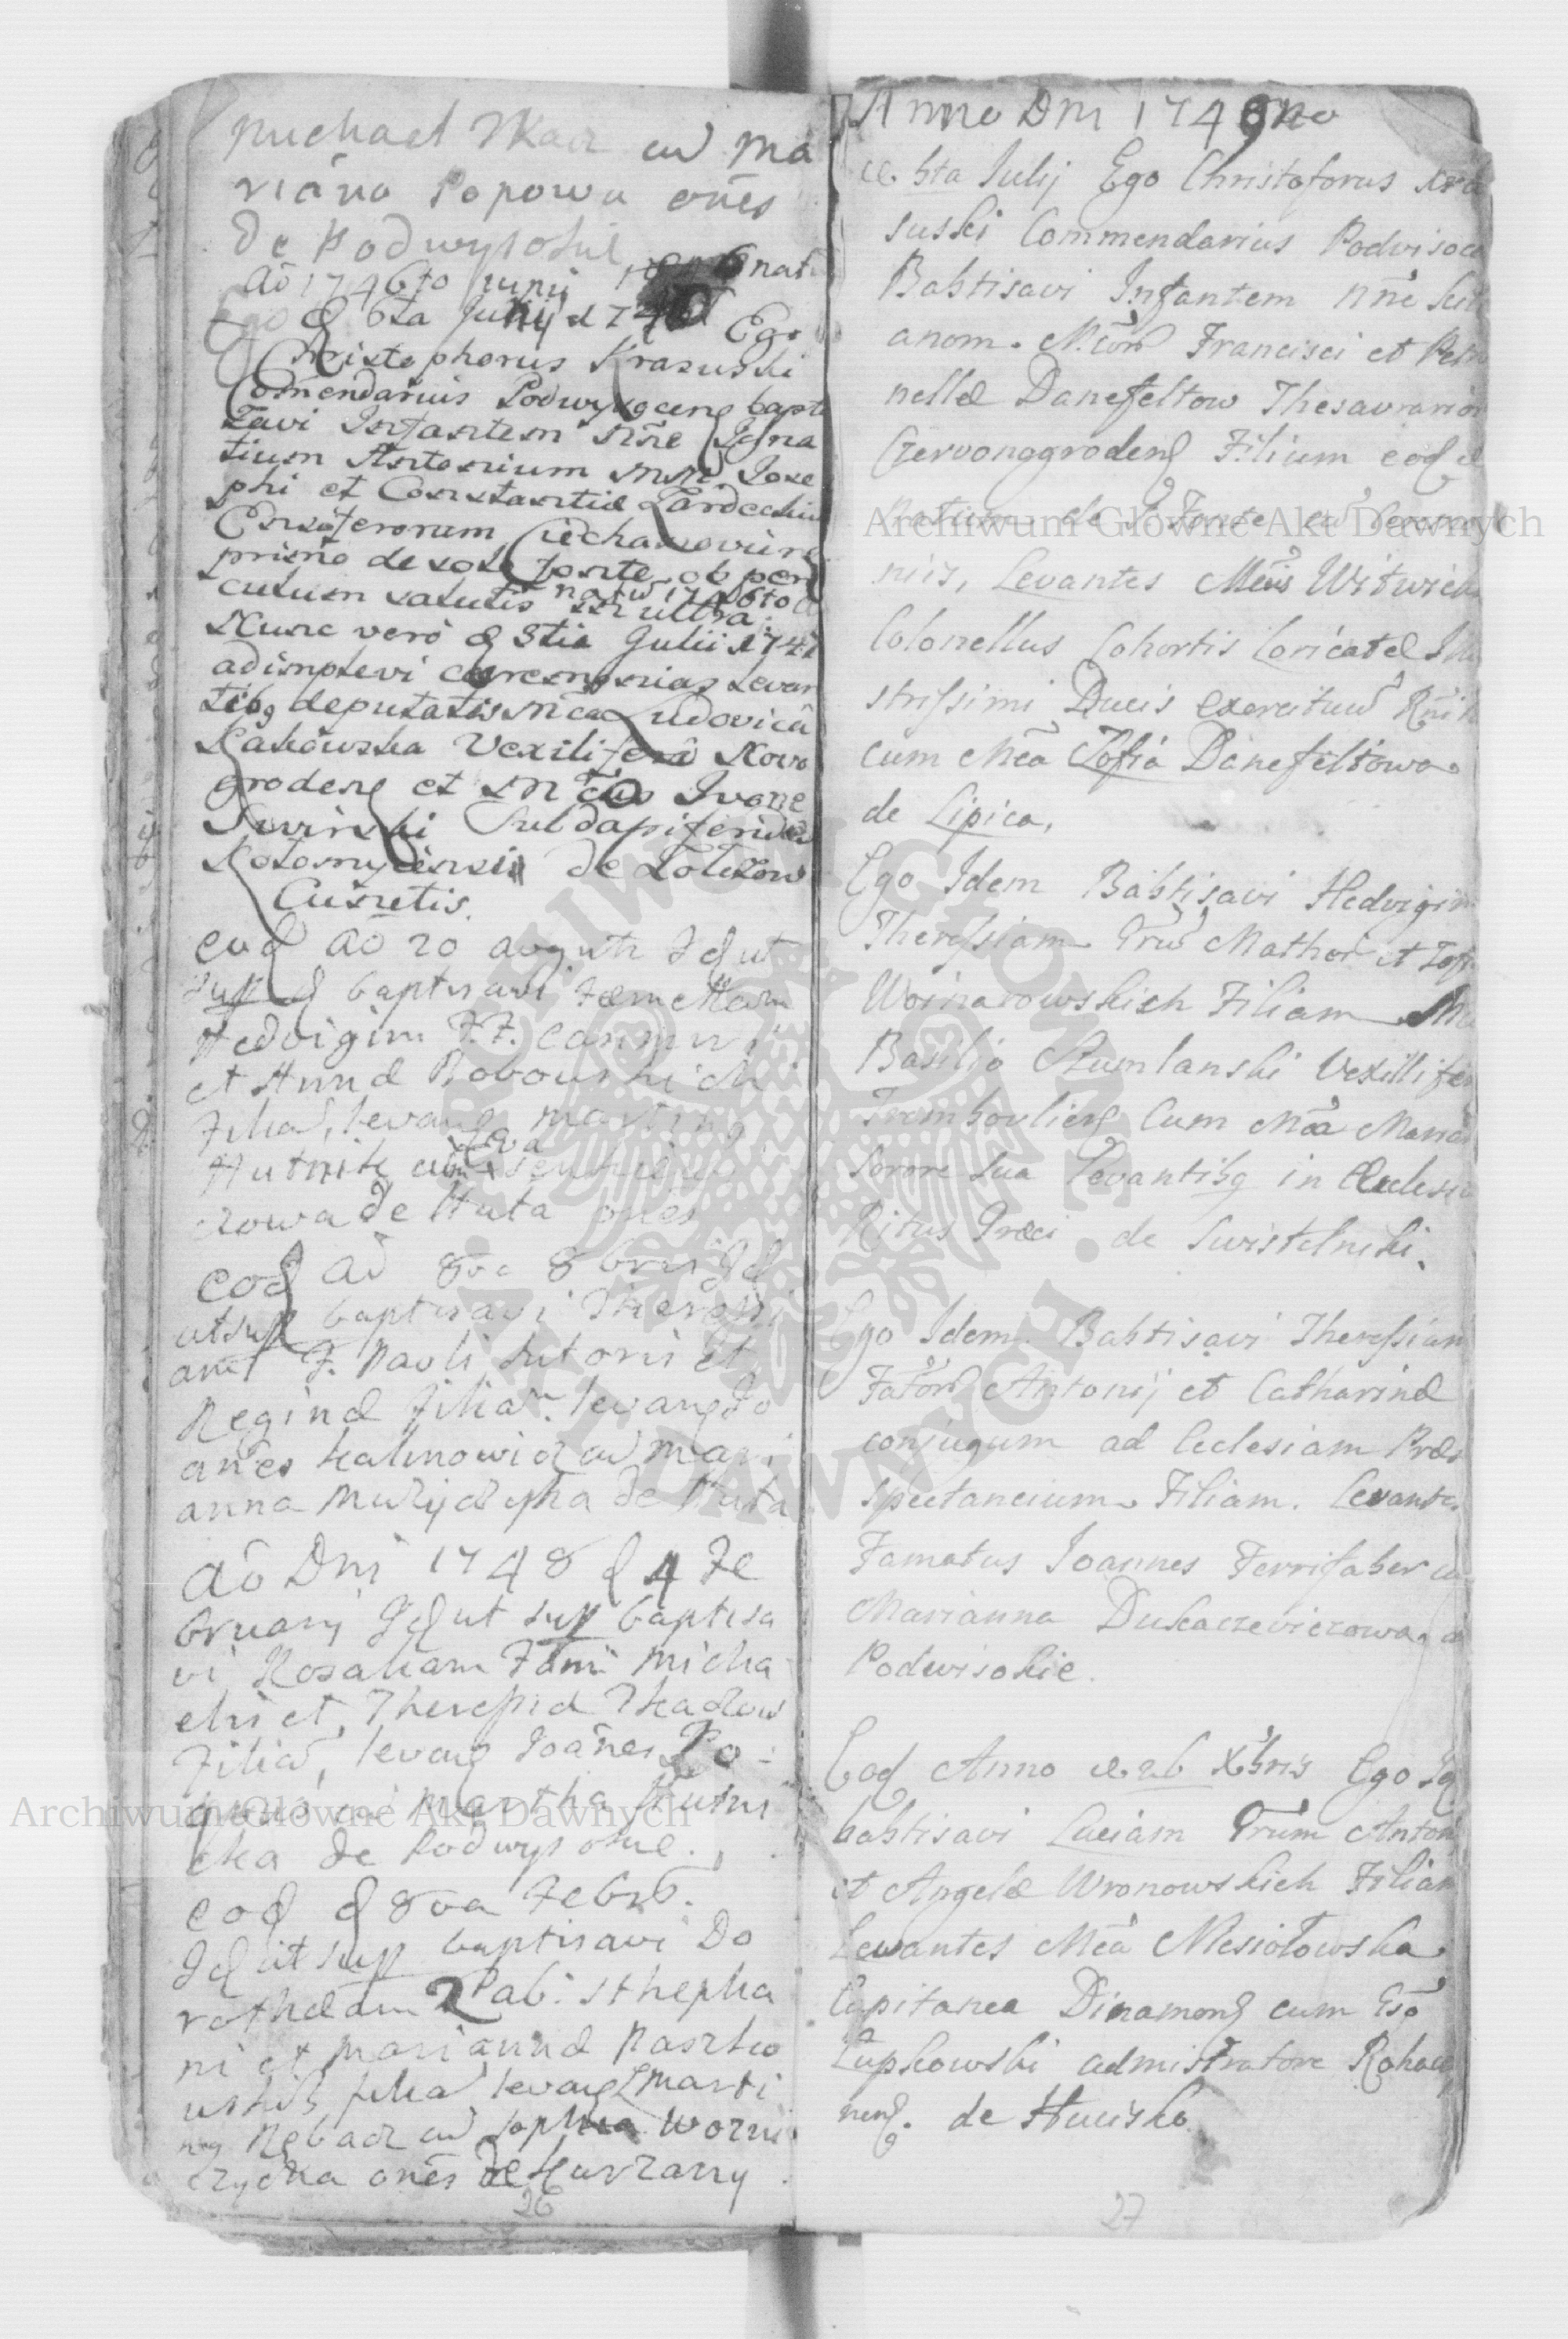 Michael Tkacz cu Ma
riana Popowa oñes
de Podwysokie
Aõ 1746to Junij nat
Ego d 6ta Junij 174 Ego
Christophorus Krasuski
Comendarius Podwysocens bapti
zavi Infantem nñe Igna
tium Antonium MM. Jose
phi et Constantiæ Zardeckich
Ensiferorum Ciechanoviens
primo de solo fonte ob peri
culum salutis natu 1746to
in ultra.
Nunc vero d 3tia Julii 1747
adimplevi ceremonias Levan
tibg deputatis Mca Ludovica
Rakowska Vexillifera Novo
grodens et M Ivone
Swirski Subdapiferide
Kolomyiensi de Zolczow
Cunctis.
eod aõ 20 augusti Id ut
sup d baptisavi
Hedvigim F.F. Casimiri
et Annæ Bobowskich
filia, levans Martinus
Hutnik cum Eva
rowa de Huta oñes
eod aõ 8va 8bris Id
ut sup baptisavi Theressi
am F. Pauli Sutoris et
Reginæ filia. levans Jo
añes Kalinowicz cu Mari
anna Muzyczyna de Huta
Aõ Dni 1748 d 4 Fe
bruarij Id ut sup baptisa
vi Rosaliam Fam Micha
elis et Theressiæ Tkaczow
Filia, levans Joañes Po
powicz cu Martha Hutni
cka de Podwysokie.
eod d 8va Febrb.
Id ut sup baptisavi Do
rotheam Lab: Stepha
ni et Mariannæ Paszko
wskich filia levans Marti
ng Rębacz cu Sophia Wozni
czycka oñes de Kurzany
26
Anno Dni 1746no
æ 6ta Julij Ego Christoforus Kra
suski Commendarius Podvisoce
Babtisavi Infantem nñe Juli
anom. Mcorum Francisci et Petro
nellæ Danefeltow Thesaurarior
Czervonogrodens Filium eod æ
natum de S. Fonte cu Ceremo
niis, Levantes Mcus Witwicki
Colonellus Cohortis Loricatæ Illu
strissimi Ducis exercituu Rni
cum Mcã Zofia Danefeltowa
de Lipica,
Ego Idem Babtisavi Hedvigim
Theressiam Grum Mathei et Zofi
Woinarowskich Filiam Mco
Basilio Szumlanski Vexillifer
Trembovliens Cum Mcã Maria
sorore sua Levantibg in Ecclesia
Ritus Græci de Swistelniki.
Ego Idem Babtisavi Theressiam
Fatorum Antonij et Catharinæ
conjugum ad Ecclesiam Præs
spectancium Filiam. Levante
Famatus Joannes Ferrifaber cu
Marianna Dukaczeviczowa de
Podwisokie.
Eod Anno æ 26 Xbris Ego Id
babtisavi Luciam Grum Antoni
et Angelæ Wronowskich Filiam
Levantes Mcã Mesiołowska
Capitanea Dinamens cum Gso
Łupkowski admistratore Rohaty
nens. de Hucisko
27
Archiwum Główne Akt Dawnych
Archiwum Główne Akt Dawnych
ARCHIWUM GŁÓWNE AKT DAWNYCH